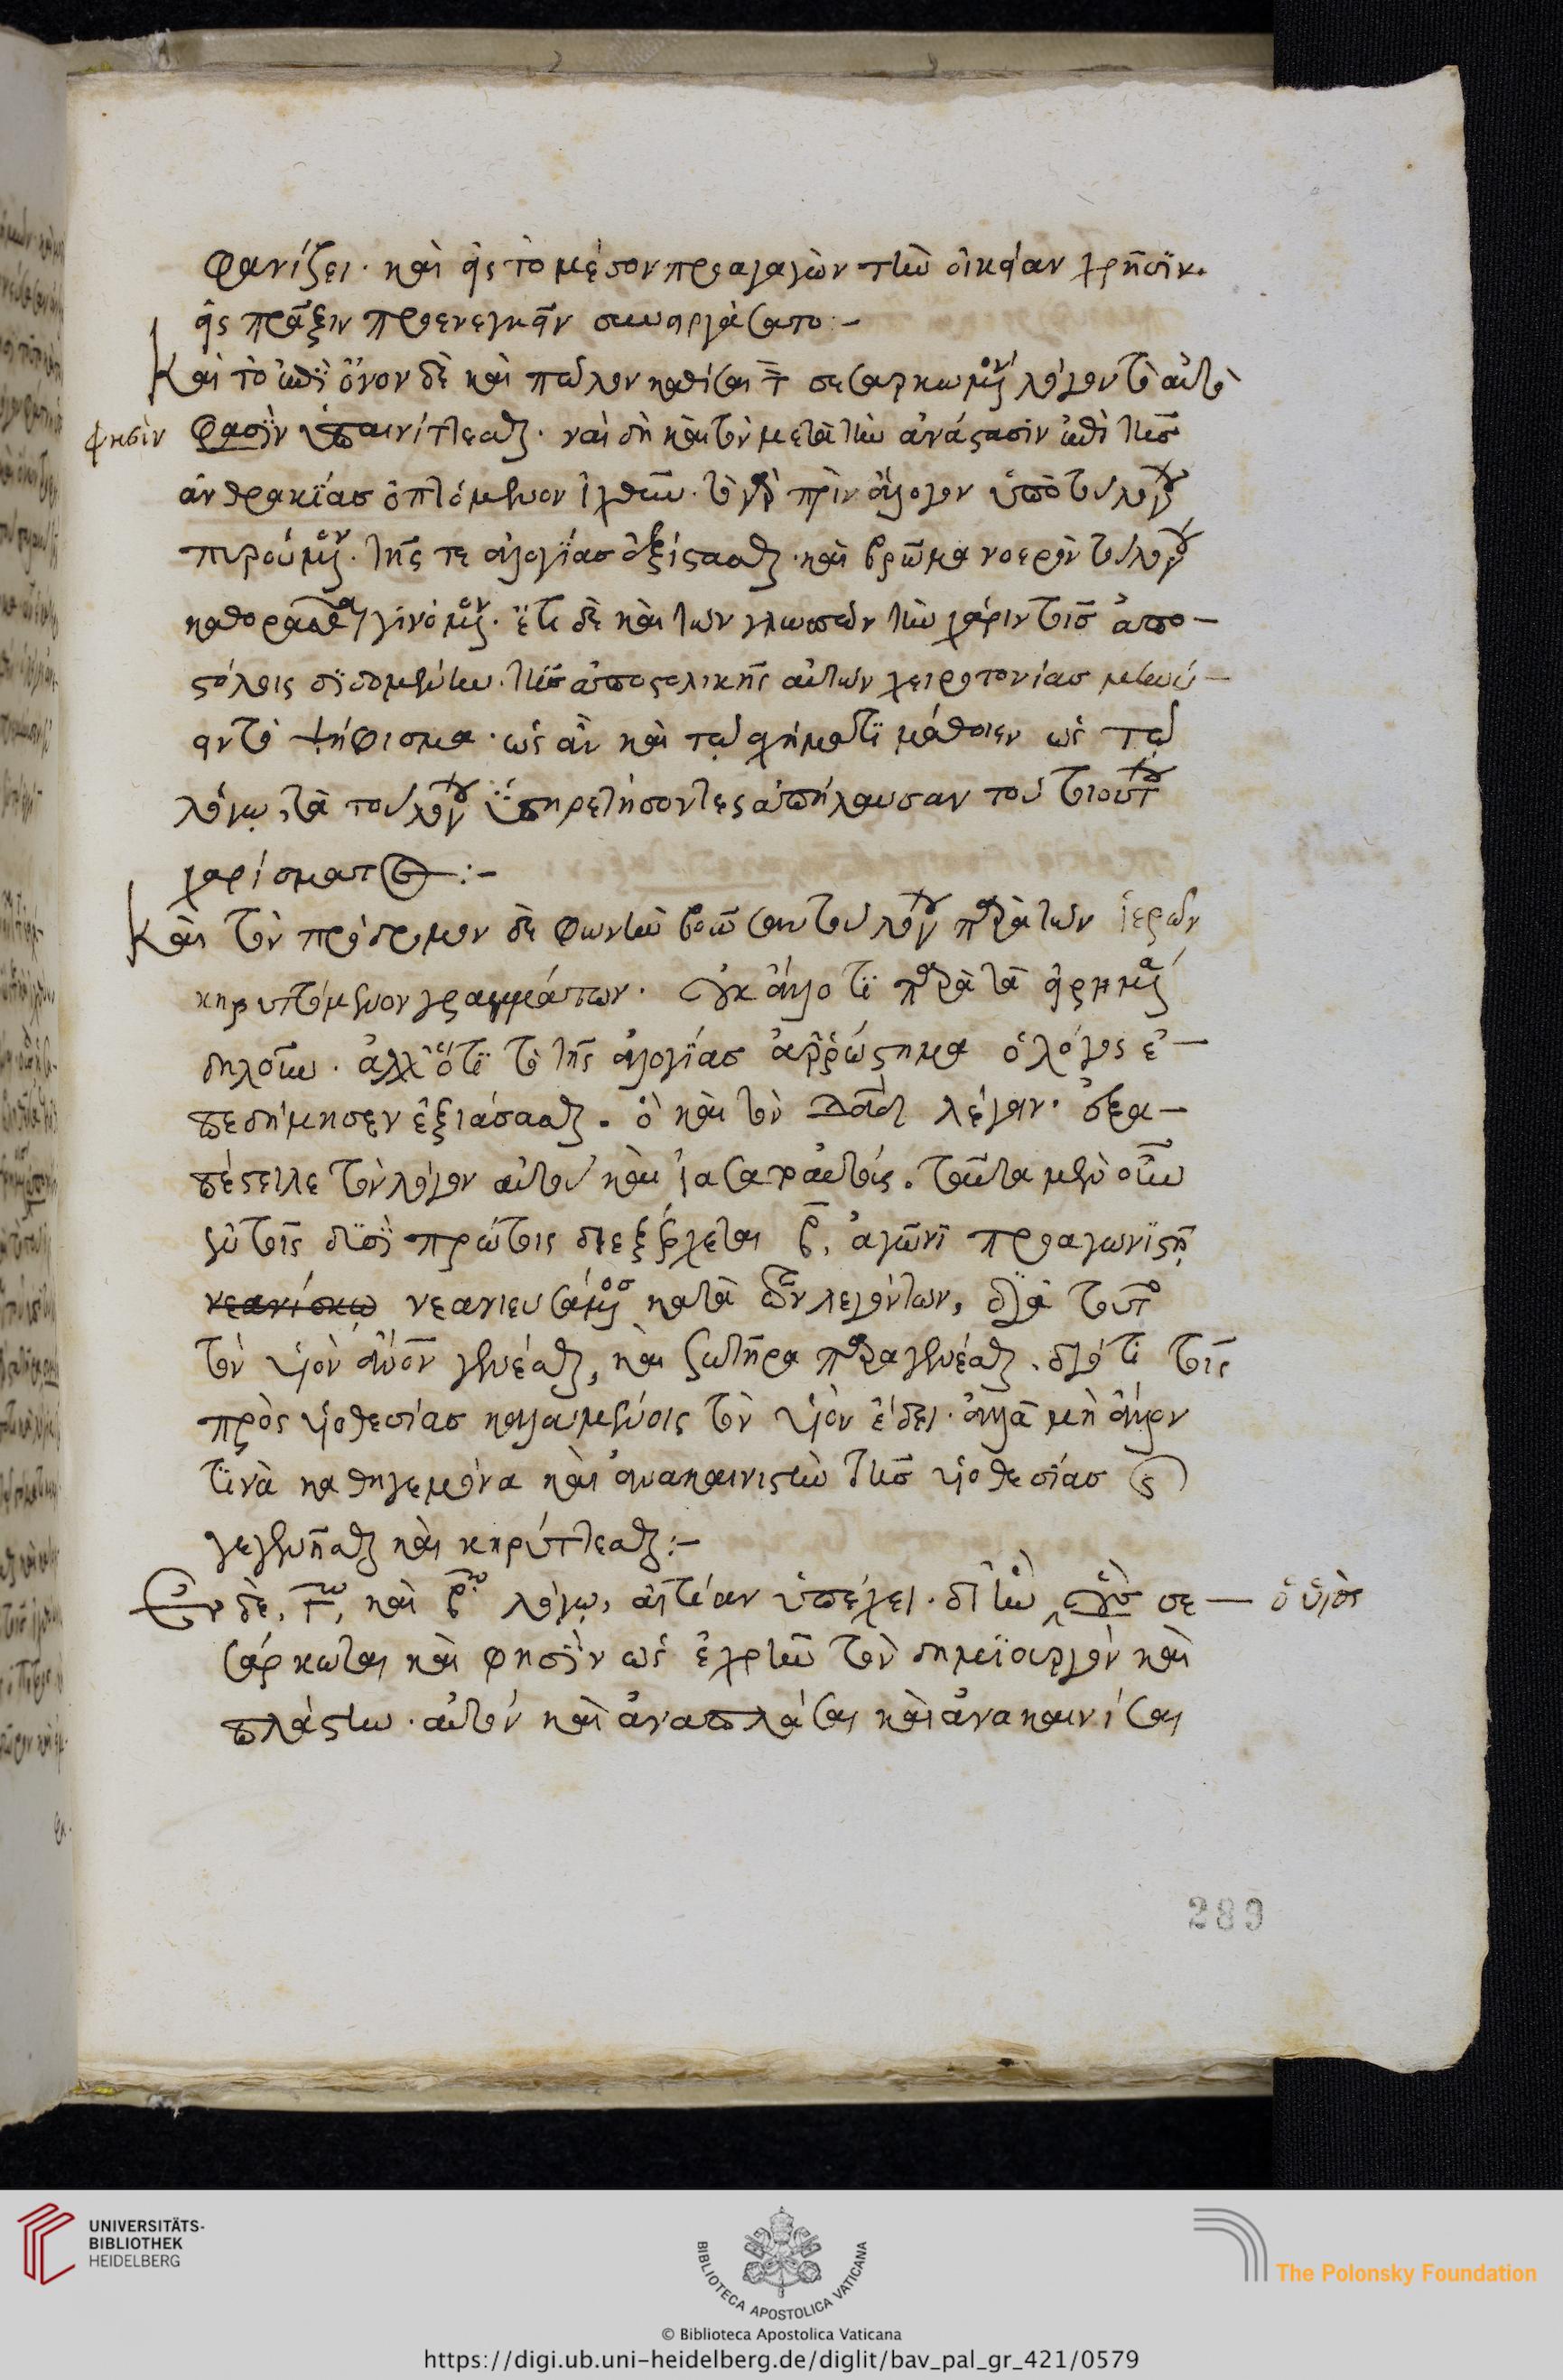 φανίζει· καὶ εἰς τὸ μέσον προαγαγὼν τὴν οἰκείαν χρῆσιν.
εἰς πρᾶξιν προενεγκεῖν συνηργάσατο:-
Καὶ τὸ ἐπὶ ὄνον δὲ καὶ πῶλον καθίσαι τ σεσαρκωμένον λόγον τὸ αὐτὸ
φησὶν φασὶν αἰνίττεσθαι· ναὶ δὴ καὶ τὸν μετὰ τὴν ἀνάστασιν ἐπὶ τῆς
ἀνθρακίας ὀπτόμενον ἰχθῦν· τὸν γὰρ πρὶν ἄλογον ὑπὸ τοῦ λόγου
πυρούμενον· τῆς τε ἀλογίας ἐξίστασθαι· καὶ βρῶμα νοερὸν τοῦ λόγου
καθορᾶσθαι γινόμενον· ἔτι δὲ καὶ τῶν γλωσσῶν τὴν χάριν τοῖς ἀπο-
στόλοις διδομένην· τῆς ἀποστολικῆς αὐτῶν χειροτονίας μηνύ-
ειν τὸ ψήφισμα· ὡς ἂν καὶ τῷ σχήματι μάθοιεν ὡς τῷ
λόγῳ, τὰ τοῦ λόγου ὑπηρετήσοντες ἀπήλαυσαν τοῦ τοιούτου
χαρίσματος:-
Καὶ τὸν πρόδρομον δὲ φωνὴν βοῶσαν τοῦ λόγου παρὰ τῶν ἱερῶν
κηρυττόμενον γραμμάτων· οὐκ ἄλλο τι παρὰ τὰ εἰρημένα
δηλοῦν· ἀλλ' ὅτι τὸ τῆς ἀλογίας ἀρρώστημα ὁ λόγος ἐ-
πεδήμησεν ἐξιάσασθαι. ὃ καὶ τὸν Δαδ λέγειν· ἐξα-
πέστειλε τὸν λόγον αὐτοῦ καὶ ἰάσατο αὐτούς. ταῦτα μὲν οὖν
ἐν τοῖς δυσὶ πρώτοις διεξέρχεται β, ἀγῶνι προαγωνιστῇ
νεανίσκω νεανιευσάμενος κατὰ τῶν λεγόντων, διὰ τοῦτο
τὸν υἱὸν ἄνον γενέσθαι, καὶ σωτῆρα παραγενέσθαι, διότι τοῖς
πρὸς υἱοθεσίας καλουμένοις τὸν υἱὸν ἔδει· ἀλλὰ μὴ ἄλλον
τινὰ καθηγεμόνα καὶ ἀνακαινιστὴν τῆς υἱοθεσίας
γεγενῆσθαι καὶ κηρύττεσθαι:-
Ἐν δὲ, τω, καὶ βω λόγῳ, αἰτίαν ὑπέχει· δι' ἣν σε- ὁ υἱὸς
σάρκωται καὶ φησὶν ὡς ἐχρῆν τὸν δημιουργὸν καὶ
πλάστην· αὐτὸν καὶ ἀναπλάσαι καὶ ἀνακαινίσαι
289
UNIVERSITÄTS-
BIBLIOTHEK
HEIDELBERG
BIBLIOTECA APOSTOLICA VATICANA
The Polonsky Foundation
© Biblioteca Apostolica Vaticana
https://digi.ub.uni-heidelberg.de/diglit/bav_pal_gr_421/0579